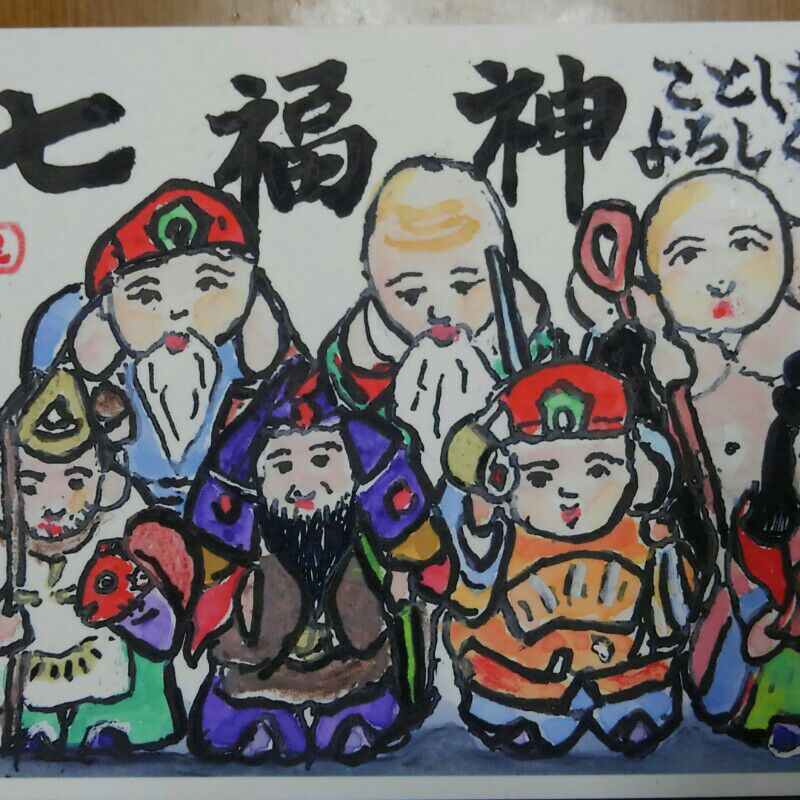 七福神
ことしも
よろしく